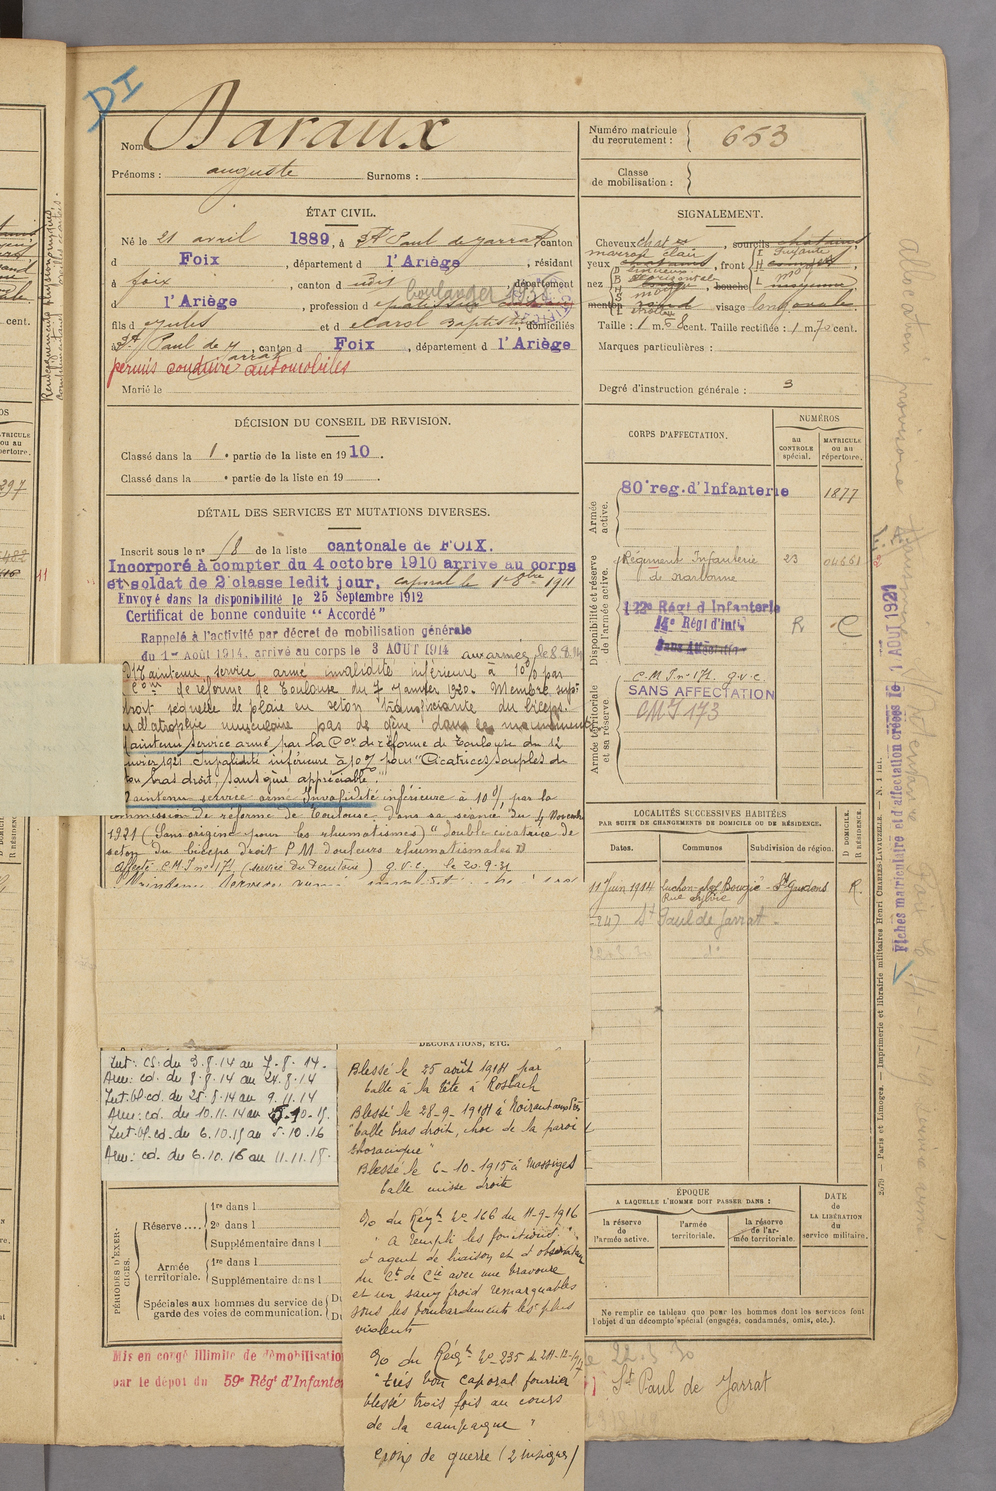 DI
Nom Daraux
Prénoms : auguste Surnoms :
Numéro matricule du recrutement : 653
Classe de mobilisation :
ÉTAT CIVIL.
Né le 21 avril 1889, à St Paul de Jarrat canton
d Foix, département d l'Ariège, résidant
à foix, canton d dudit, département
d l'Ariège, profession d boulanger 1931
fils d Jules et d domiciliés
à St Paul de Jarrat, canton d Foix, département d l'Ariège
permis conduire automobiles
Marié le
SIGNALEMENT.
Cheveux chat sourcils chatains
yeux marron clair front
nez horizontal bouche moyenne
menton visage long ovale
Taille : 1 m. 68 cent. Taille rectifiée : 1 m. 72 cent.
Marques particulières :
Degré d'instruction générale : 3
DÉCISION DU CONSEIL DE REVISION.
Classé dans la 1 e partie de la liste en 1910.
Classé dans la e partie de la liste en 19 .
DÉTAIL DES SERVICES ET MUTATIONS DIVERSES.
Inscrit sous le n° 18 de la liste cantonale de FOIX.
Incorporé à compter du 4 octobre 1910 arrivé au corps
et soldat de 2e classe ledit jour, caporal le 1er 8bre 1911
Envoyé dans la disponibilité le 25 Septembre 1912
Certificat de bonne conduite "Accordé"
Rappelé à l'activité par décret de mobilisation générale
du 1er Août 1914, arrivé au corps le 3 AOUT 1914 aux armées le 8.8.14
Maintenu service armé invalidité inférieure à 10% par
Con de réforme de Toulouse du 7 Janvier 1920. Membre supr
droit séquelle de plaie en séton transversante du biceps
d'atrophie musculaire pas de gêne dans les mouvements
maintenu service armé par la Con de réforme de Toulouse du 12
janvier 1921 Invalidité inférieure à 10% pour "Cicatrices souples du
bras droit, sans gêne appréciable."
Maintenu service armé Invalidité inférieure à 10%, par la
commission de réforme de Toulouse dans sa séance du 4 Novembre
1921 (Sans origine pour les rhumatismes) "double cicatrice de
séton du biceps droit P.M. douleurs rhumatismales
Affecté C.M.I n° 171 (service du Territoire) g.v.c. le 20.9.31
CORPS D'AFFECTATION.
NUMÉROS
au CONTROLE spécial.
MATRICULE OU AU répertoire.
Armée active.
80e reg. d'Infanterie 1877
Disponibilité et réserve de l'armée active.
Régiment Infanterie de Narbonne 23 04661
122e Régt d'Infanterie
14e Régt d'Inf. R C
Armée territoriale et sa réserve.
C.M.I n° 171. g.v.c.
SANS AFFECTATION
CMI 173
LOCALITÉS SUCCESSIVES HABITÉES
PAR SUITE DE CHANGEMENTS DE DOMICILE OU DE RÉSIDENCE.
Dates. Communes Subdivision de région. D DOMICILE. R RÉSIDENCE
11 Juin 1914 Luchon St Gaudens R.
Rue Sylvie
St Paul de Jarrat
DÉCORATIONS, ETC.
Int: cd. du 3.8.14 au 7.8.14.
Arm: cd. du 8.8.14 au 24.8.14
Int. bl. cd. du 25.8.14 au 9.11.14
Arm: cd. du 10.11.14 au 5.10.15.
Int. bl. cd. du 6.10.15 au 5.10.16
Arm: cd. du 6.10.16 au 11.11.18.
Blessé le 25 août 1914 par
balle à la tête à Rosbach
Blessé le 28-9-1914 à Noirant
"balle bras droit, choc de la paroi
thoracique"
Blessé le 6-10-1915 à Massiges
balle cuisse droite
O/o du Régt N° 166 du 11-9-1916
"A rempli les fonctions
d'agent de liaison et d'observateur
du Ct de Cie avec une bravoure
et un sang froid remarquables
sous les bombardements les plus
violents
O/o du Régt N° 235 du 24-12-17
"très bon caporal fourrier
blessé trois fois au cours
de la campagne "
Croix de guerre (2 insignes)
PÉRIODES D'EXERCICES.
Réserve.... 1re dans l
2e dans l
Supplémentaire dans l
Armée territoriale. 1re dans l
Supplémentaire dans l
Spéciales aux hommes du service de garde des voies de communication.
ÉPOQUE
A LAQUELLE L'HOMME DOIT PASSER DANS :
la réserve de l'armée active.
l'armée territoriale.
la réserve de l'armée territoriale.
DATE DE LA LIBÉRATION du service militaire.
Ne remplir ce tableau que pour les hommes dont les services font
l'objet d'un décompte spécial (engagés, condamnés, omis, etc.).
Mis en congé illimité de démobilisation
par le dépôt du 59e Régt d'Infante
le 22.5.30
St Paul de Jarrat
Fiches matriculaire et d'affectation créées le 1 AOUT 1921
2679 — Paris et Limoges. — Imprimerie et librairie militaires Henri CHARLES-LAVAUZELLE.
Allocation provisoire